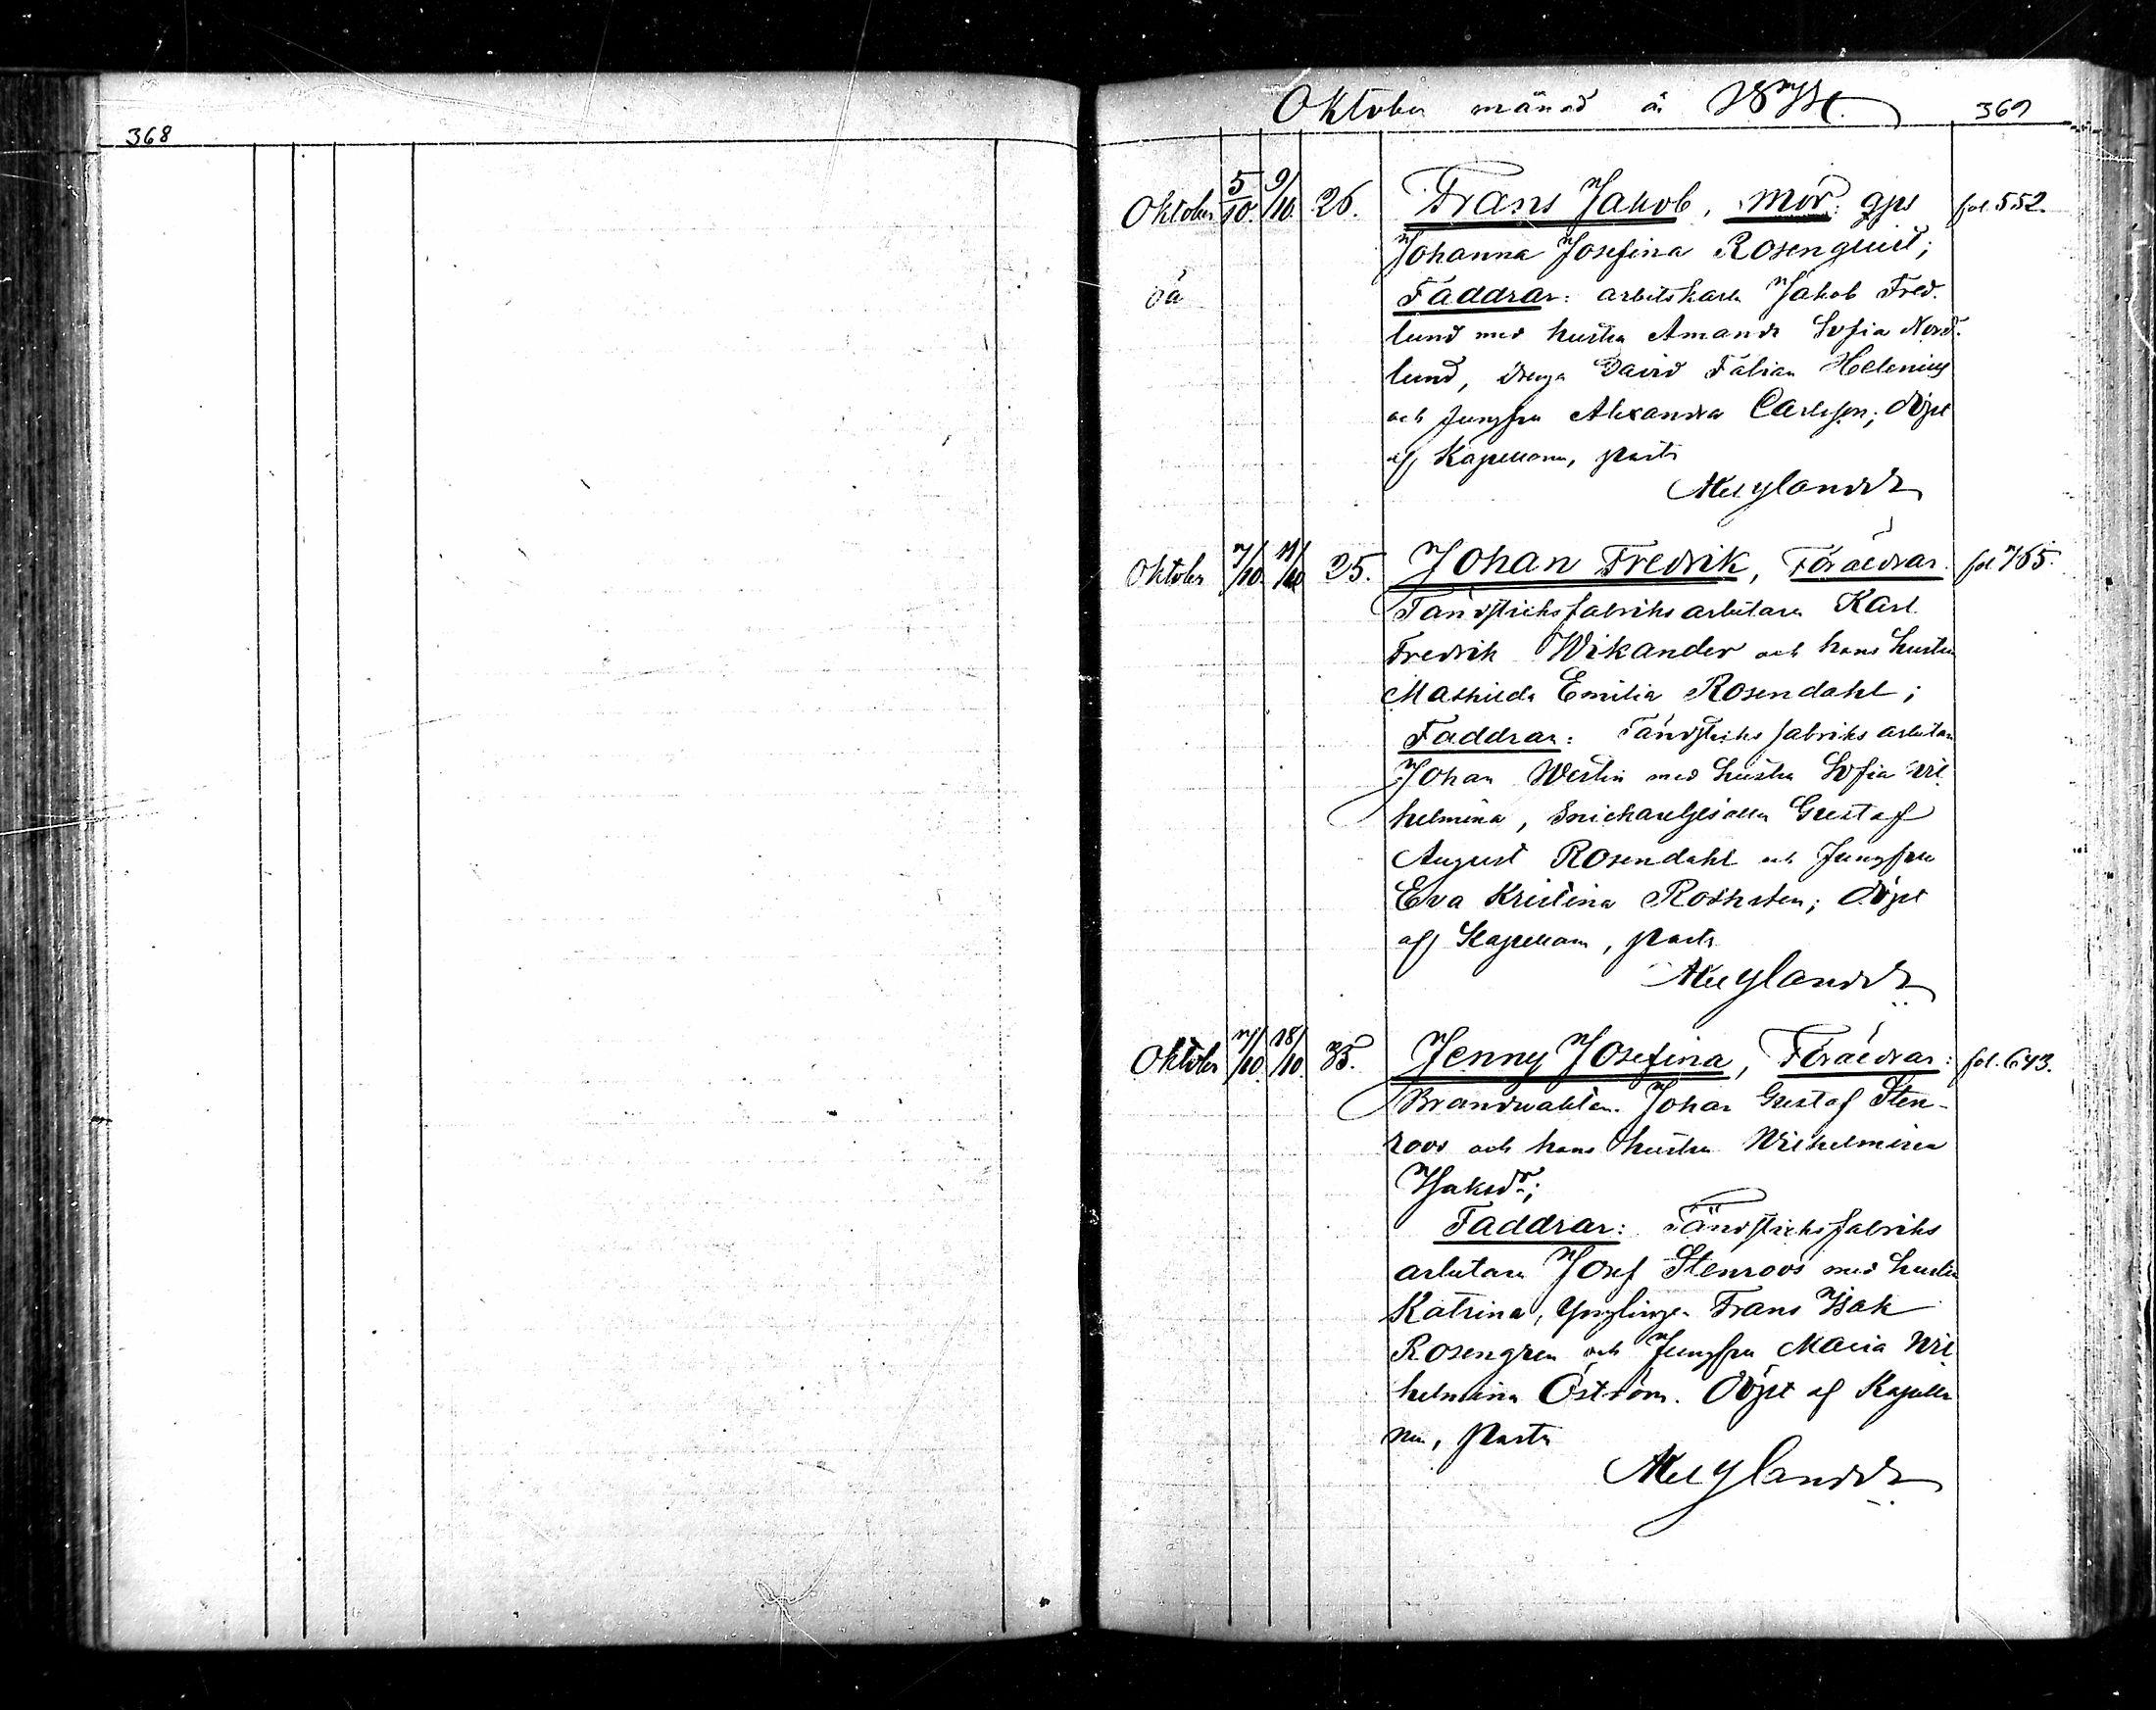 368
Oktober månad år 1874. 369
Oktober 5/10. 9/10. 26. Frans Jakob, Mor: gps fol. 552.
Johanna Josefina Rosenquist;
oä Faddrar: arbetskarlen Jakob Fred-
lund med hustru Amanda Sofia Nord-
lund, drengen David Fabian Helenius
och Jungfru Alexandra Carlsson; döpt
af Kapellanen, past:
Oktober 7/10. 11/10 25. Johan Fredrik, Föräldrar: fol 765.
Tändsticksfabriksarbetaren Karl
Fredrik Wikander och hans hustru
Mathilda Emilia Rosendahl;
Faddrar: Tändsticksfabriks arbetaren
Johan Westin med hustru Sofia Wil-
helmina, Snickaregesällen Gustaf
August Rosendahl och Jungfrun
Eva Kristina Rothsten; döpt
af Kapellanen, past:
Oktober 7/10. 18/10. 35. Jenny Josefina, Föräldrar: fol. 643.
Brandvakten Johan Gustaf Sten-
roos och hans hustru Wilhelmina
Isaksdr;
Faddrar: Tändsticksfabriks
arbetaren Josef Stenroos med hustru
Katrina, Ynglingen Frans Isak
Rosengren och Jungfru Maria Wil-
helmina Öström. Döpt af Kapella-
nen, past: